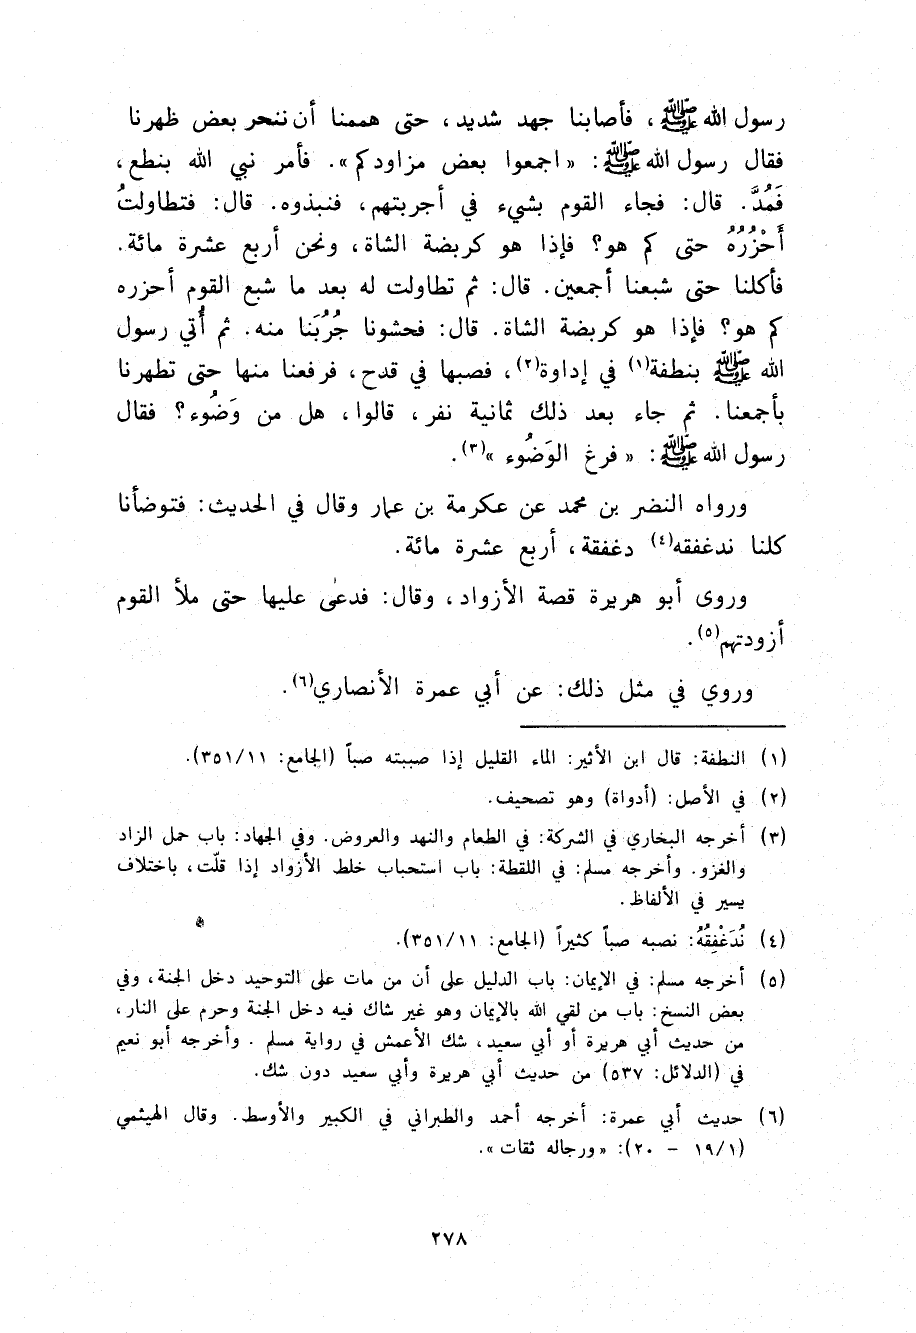 رسول الله ﷺ، فأصابنا جهد شديد، حتى هممنا أن ننحر بعض ظهرنا
فقال رسول الله ﷺ: «اجمعوا بعض مزاودكم». فأمر نبي الله بنطع،
فَمُدَّ. قال: فجاء القوم بشيء في أجربتهم، فنبذوه. قال: فتطاولتُ
أَحْزُرُهُ حتى كم هو؟ فإذا هو كربضة الشاة، ونحن أربع عشرة مائة.
فأكلنا حتى شبعنا أجمعين. قال: ثم تطاولت له بعد ما شبع القوم أحزره
كم هو؟ فإذا هو كربضة الشاة. قال: فحشونا جُرُبَنا منه. ثم أُتي رسول
الله ﷺ بنطفة(١) في إداوة(٢)، فصبها في قدح، فرفعنا منها حتى تطهرنا
بأجمعنا. ثم جاء بعد ذلك ثمانية نفر، قالوا، هل من وَضُوء؟ فقال
رسول الله ﷺ: «فرغ الوَضُوء»(٣).
ورواه النضر بن محمد عن عكرمة بن عمار وقال في الحديث: فتوضأنا
كلنا ندغفقه(٤) دغفقة، أربع عشرة مائة.
وروى أبو هريرة قصة الأزواد، وقال: فدعىٰ عليها حتى ملأ القوم
أزودتهم(٥).
وروي في مثل ذلك: عن أبي عمرة الأنصاري(٦).
(١) النطفة: قال ابن الأثير: الماء القليل إذا صببته صباً (الجامع: ٣٥١/١١).
(٢) في الأصل: (أدواة) وهو تصحيف.
(٣) أخرجه البخاري في الشركة: في الطعام والنهد والعروض. وفي الجهاد: باب حمل الزاد
والغزو. وأخرجه مسلم: في اللقطة: باب استحباب خلط الأزواد إذا قلّت، باختلاف
يسير في الألفاظ.
(٤) نُدَغْفِقُهُ: نصبه صباً كثيراً (الجامع: ٣٥١/١١).
(٥) أخرجه مسلم: في الإيمان: باب الدليل على أن من مات على التوحيد دخل الجنة، وفي
بعض النسخ: باب من لقي الله بالإيمان وهو غير شاك فيه دخل الجنة وحرم على النار،
من حديث أبي هريرة أو أبي سعيد، شك الأعمش في رواية مسلم. وأخرجه أبو نعيم
في (الدلائل: ٥٣٧) من حديث أبي هريرة وأبي سعيد دون شك.
(٦) حديث أبي عمرة: أخرجه أحمد والطبراني في الكبير والأوسط. وقال الهيثمي
(١٩/١ - ٢٠): «ورجاله ثقات».
٢٧٨